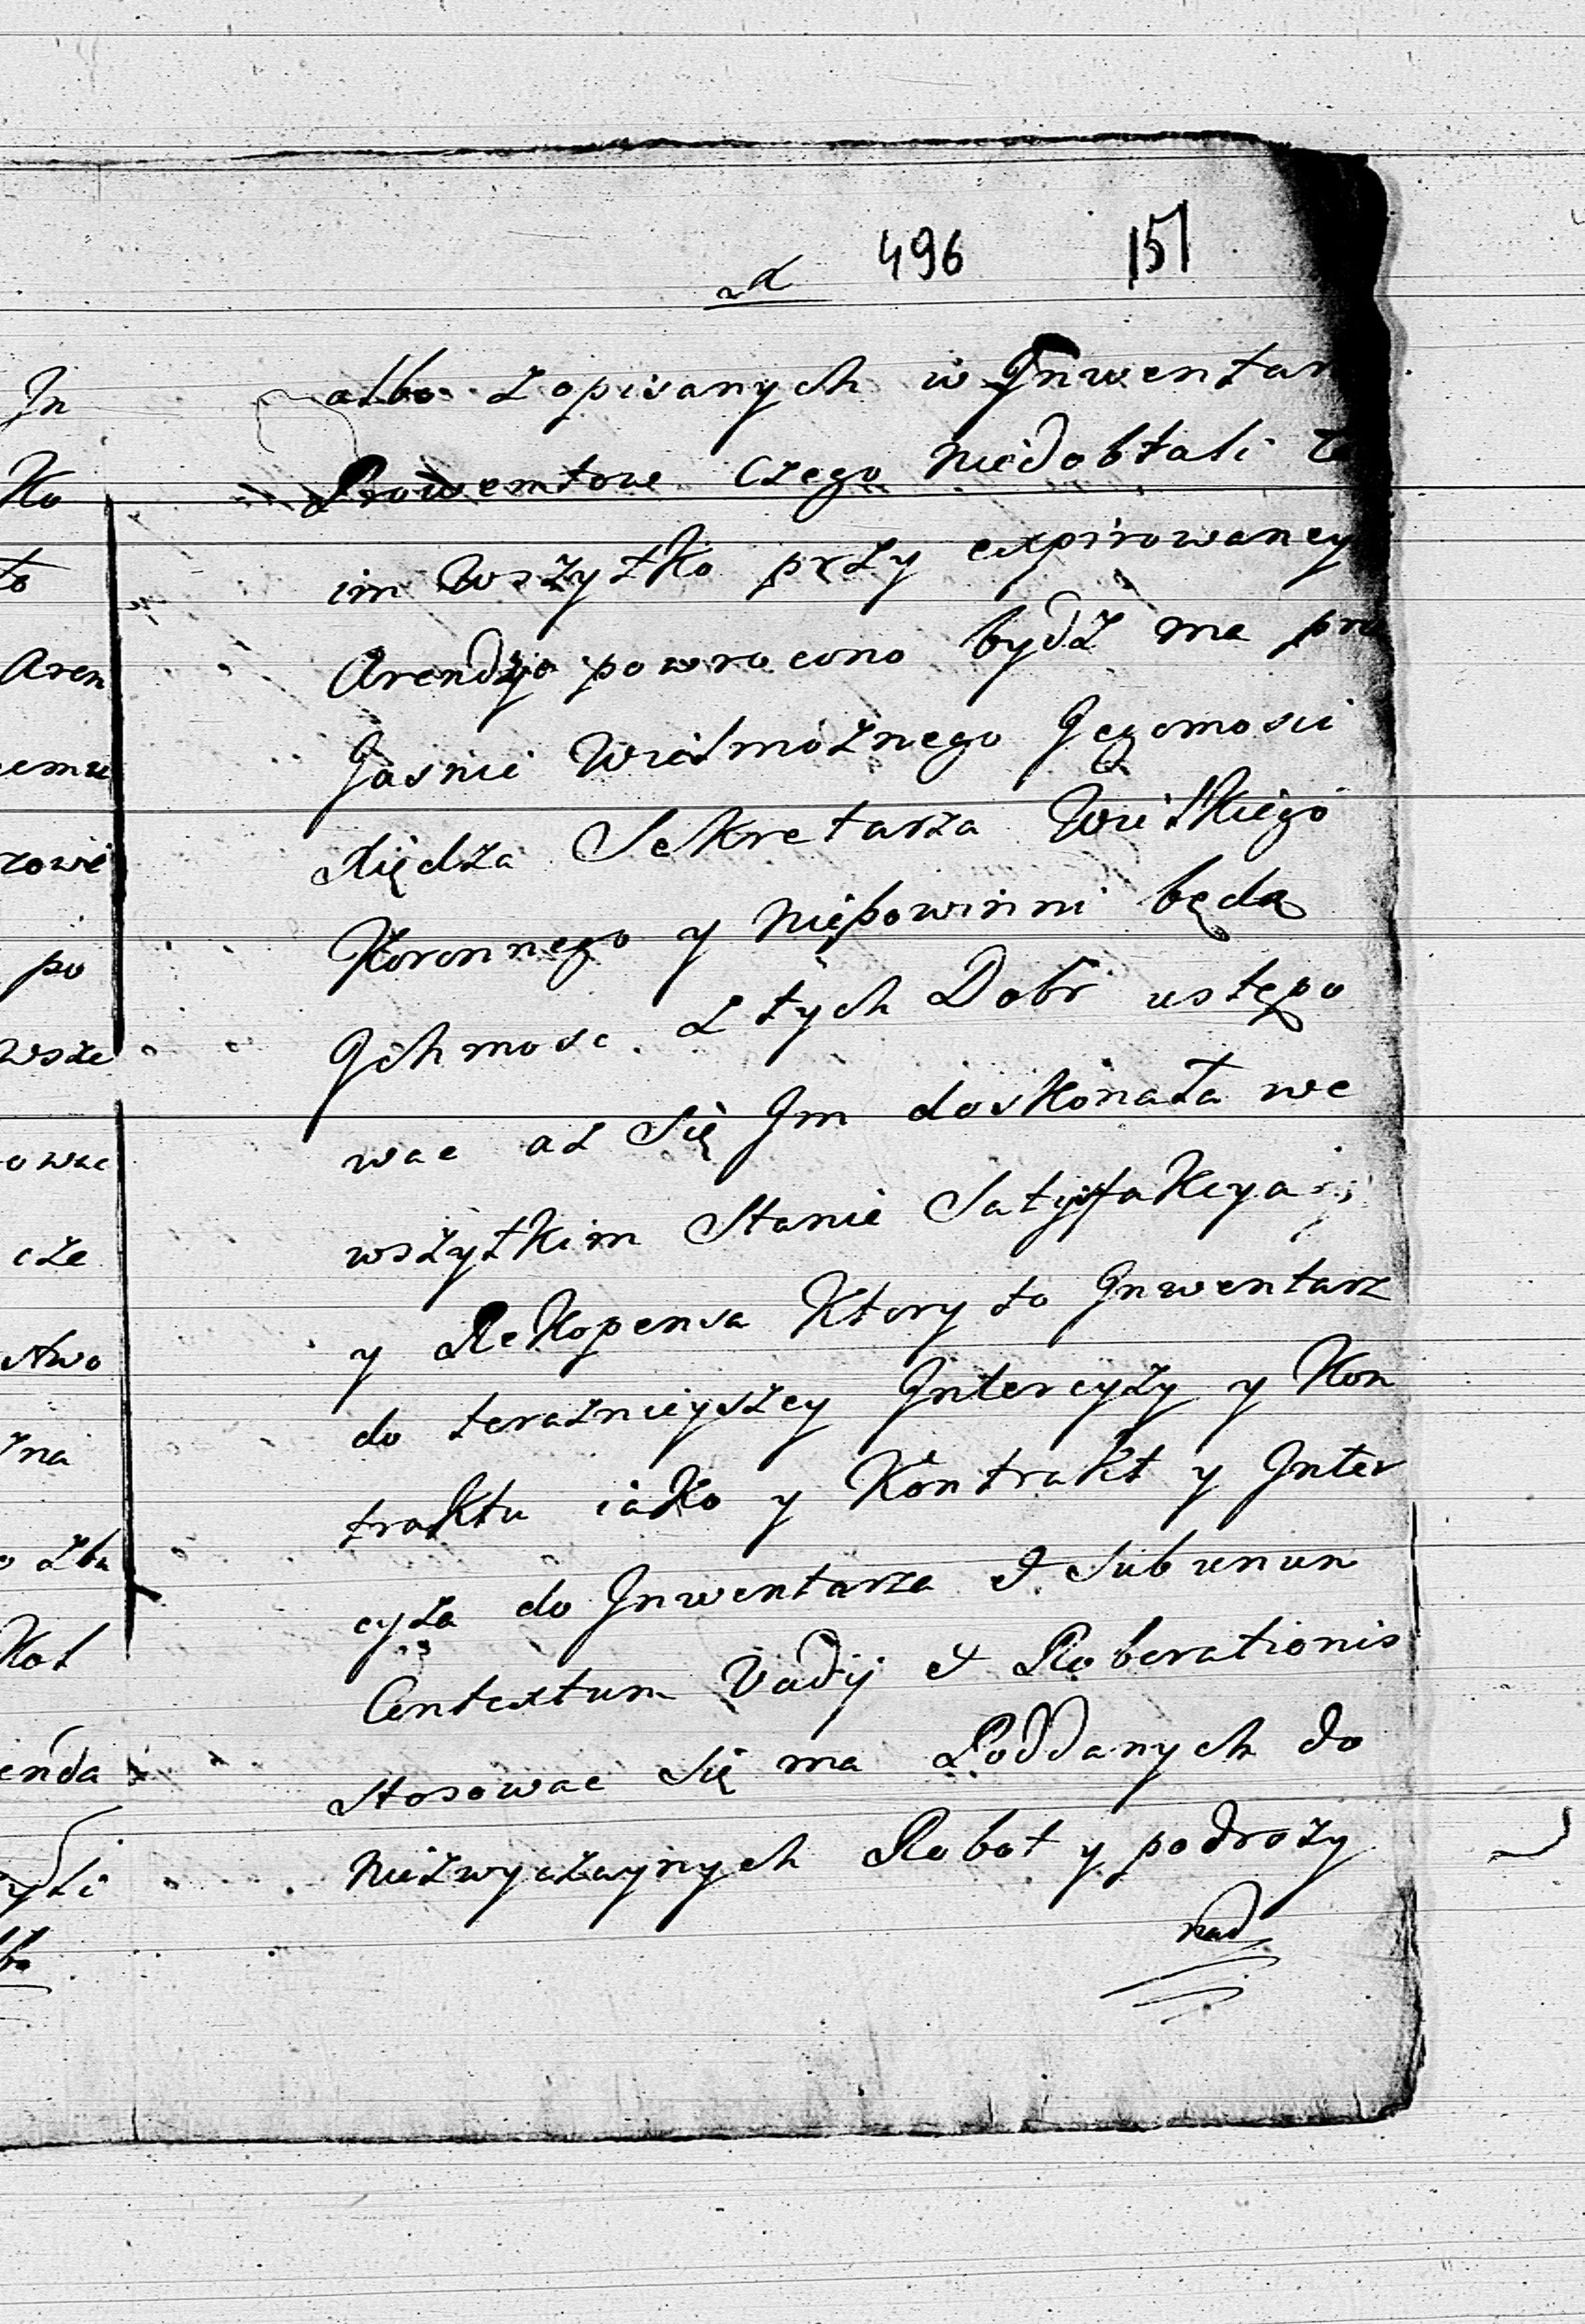 496 151
albo zapisanych w Inwentar
Prowentow czego niedobrali to
im wszytko przy expirowaney
Arendzie powrocono bydź ma prze
Jasnie Wielmożnego Jegomosci
Xiędza Sekretarza Wielkiego
Koronnego y niepowinni będą
Jchmosc z tych Dobr ustępo
wac az się Jm doskonała we
wszytkim stanie Satysfakcya
y Rekopensa Ktory to Inwentarz
do terazneyszey Intercyzy y Kon
traktu iako y Kontrakt y Inter
cyza do Inwentarza et sub unum
Contextum Vadij et Roborationis
stosowac się ma Poddanych do
niezwyczaynych Robot y podrozy
nad
In
Ko
to
Aren
emu
rowi
po
wsze
owac
cze
stwo
zna
Kol
enda